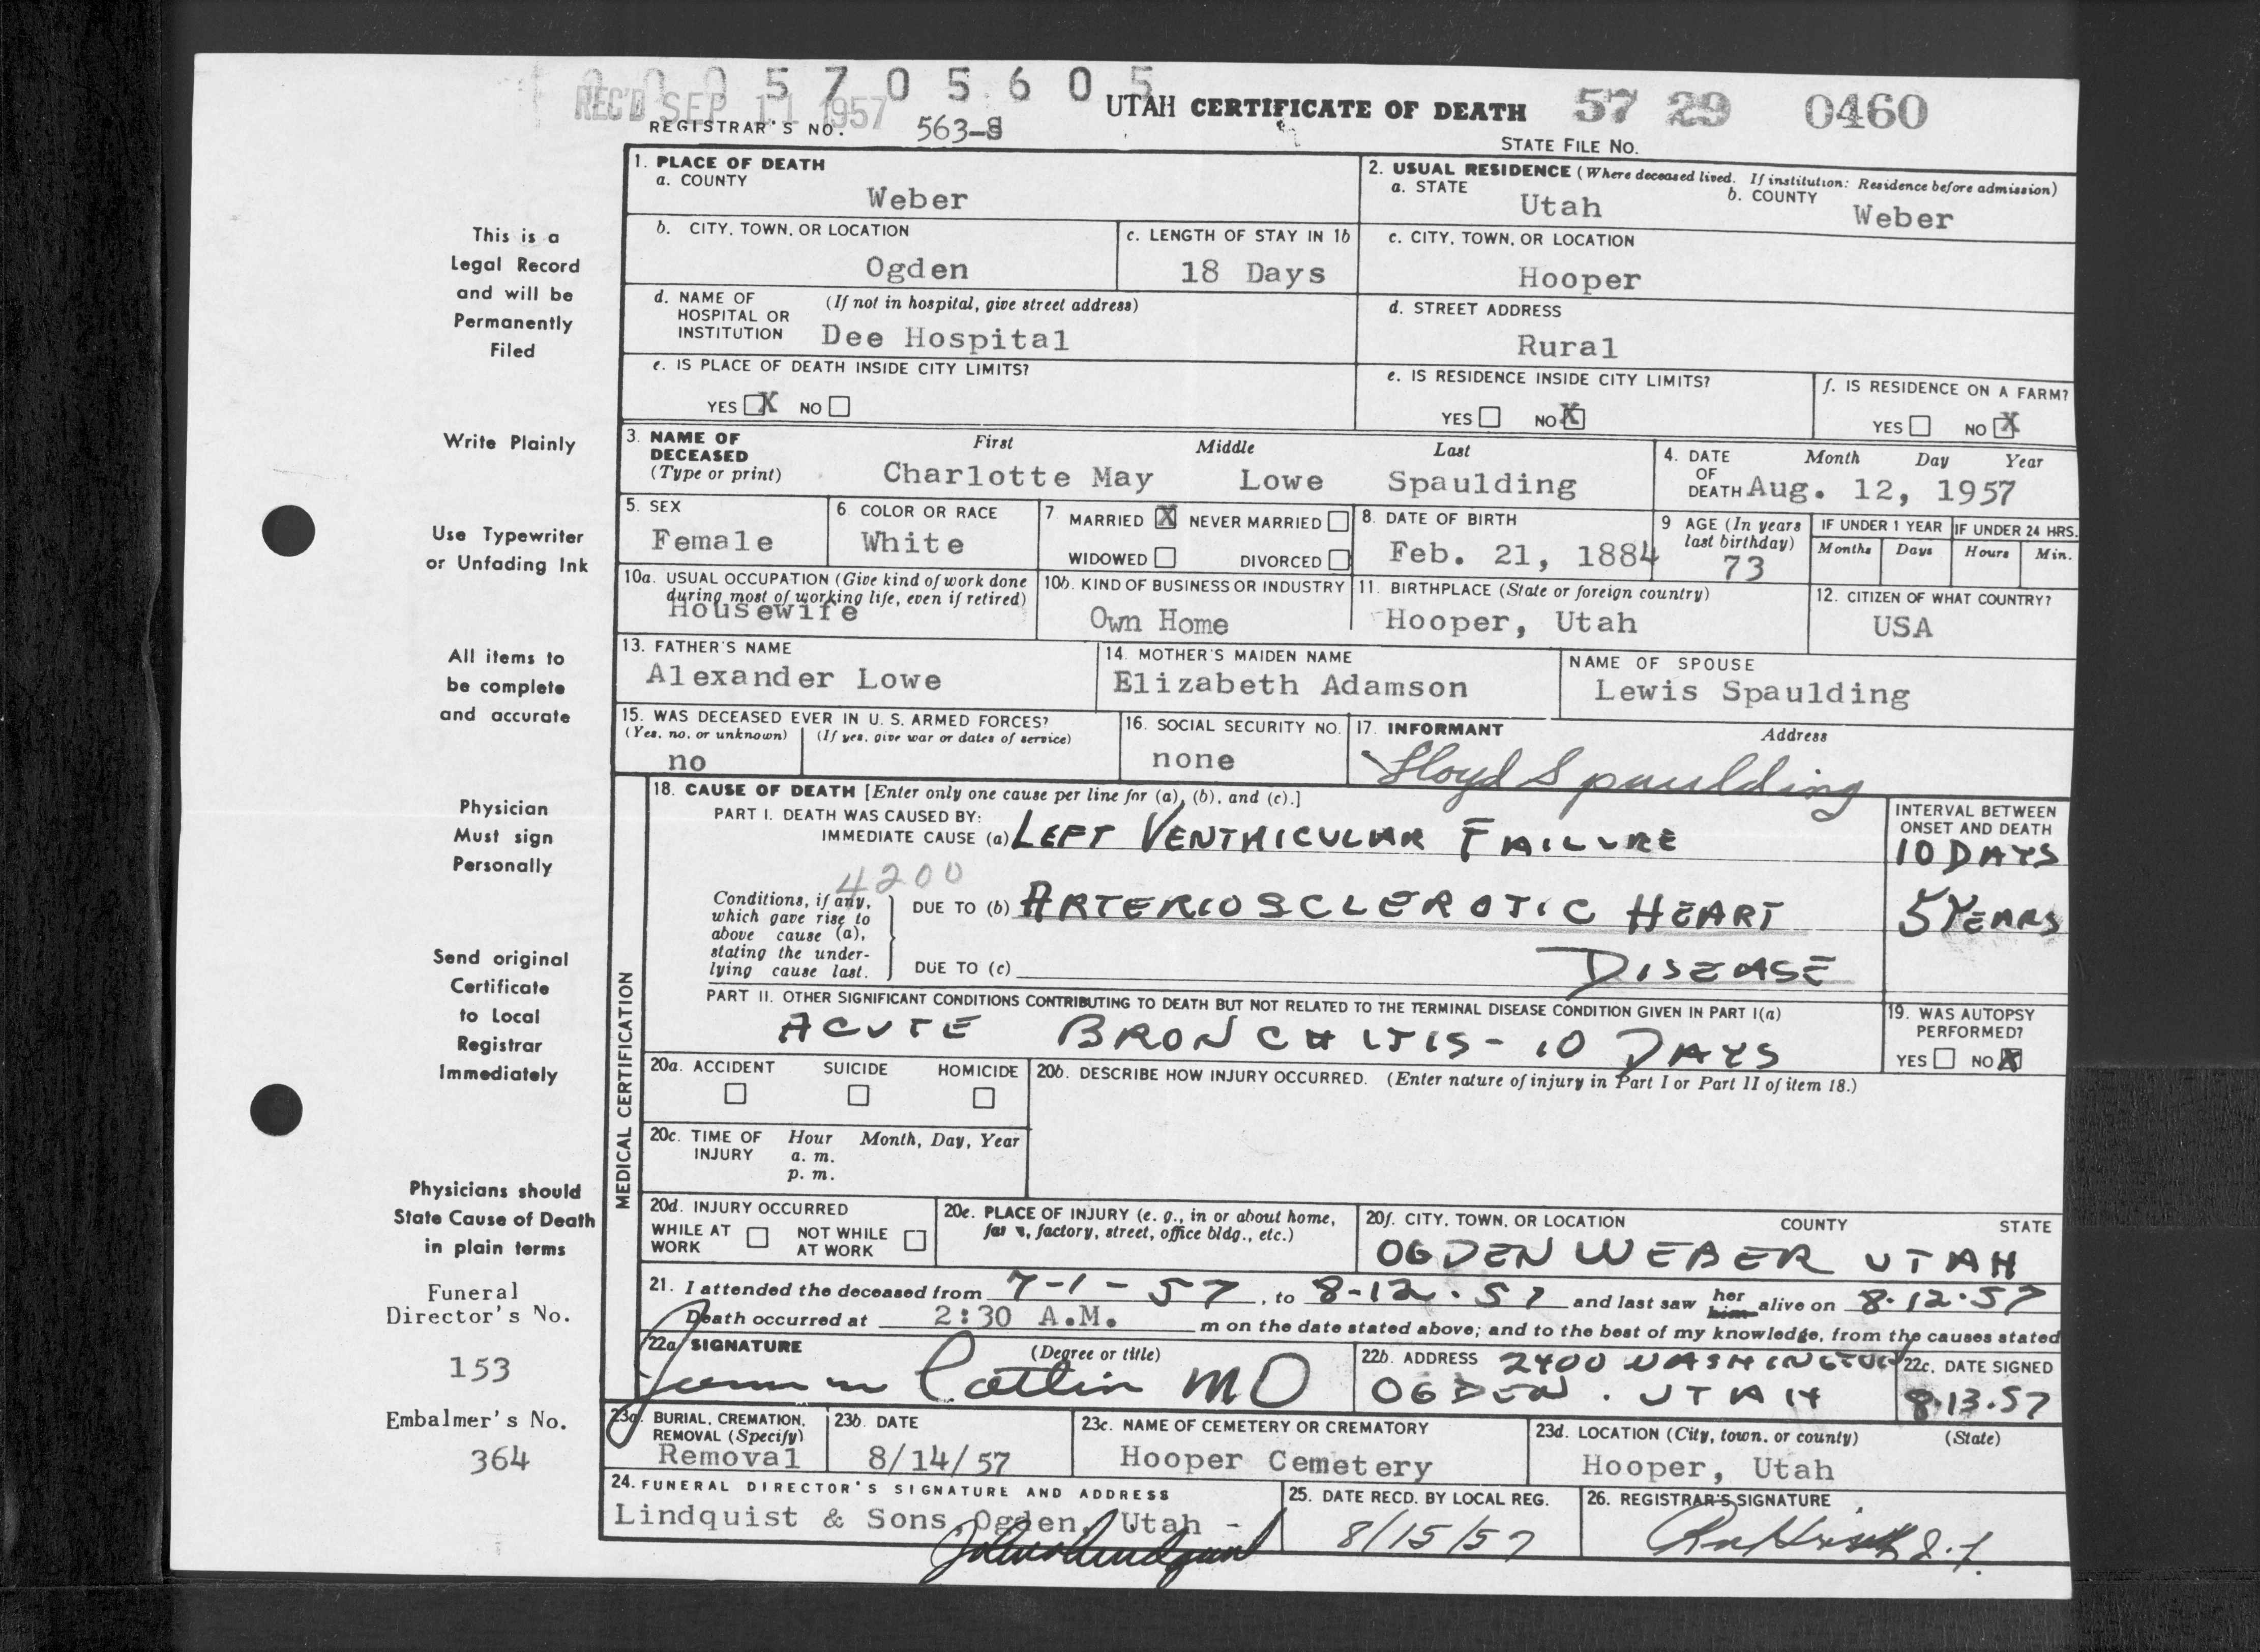 0 0 0 5 7 0 5 6 0 5
REC'D SEP 11 1957
UTAH CERTIFICATE OF DEATH 57 29 0460
REGISTRAR'S NO. 563-S
STATE FILE No.
1. PLACE OF DEATH
a. COUNTY
Weber
2. USUAL RESIDENCE (Where deceased lived. If institution: Residence before admission)
a. STATE Utah b. COUNTY Weber
b. CITY, TOWN, OR LOCATION
Ogden
c. LENGTH OF STAY IN 1b
18 Days
c. CITY, TOWN, OR LOCATION
Hooper
d. NAME OF HOSPITAL OR INSTITUTION (If not in hospital, give street address)
Dee Hospital
d. STREET ADDRESS
Rural
e. IS PLACE OF DEATH INSIDE CITY LIMITS?
YES X NO
e. IS RESIDENCE INSIDE CITY LIMITS?
YES NO X
f. IS RESIDENCE ON A FARM?
YES NO X
3. NAME OF DECEASED (Type or print)
First Middle Last
Charlotte May Lowe Spaulding
4. DATE OF DEATH Month Day Year
Aug. 12, 1957
5. SEX
Female
6. COLOR OR RACE
White
7 MARRIED X NEVER MARRIED
WIDOWED DIVORCED
8. DATE OF BIRTH
Feb. 21, 1884
9 AGE (In years last birthday)
73
IF UNDER 1 YEAR
Months Days
IF UNDER 24 HRS.
Hours Min.
10a. USUAL OCCUPATION (Give kind of work done during most of working life, even if retired)
Housewife
10b. KIND OF BUSINESS OR INDUSTRY
Own Home
11. BIRTHPLACE (State or foreign country)
Hooper, Utah
12. CITIZEN OF WHAT COUNTRY?
USA
13. FATHER'S NAME
Alexander Lowe
14. MOTHER'S MAIDEN NAME
Elizabeth Adamson
NAME OF SPOUSE
Lewis Spaulding
15. WAS DECEASED EVER IN U. S. ARMED FORCES?
(Yes, no, or unknown) (If yes, give war or dates of service)
no
16. SOCIAL SECURITY NO.
none
17. INFORMANT Address
Lloyd Spaulding
MEDICAL CERTIFICATION
18. CAUSE OF DEATH [Enter only one cause per line for (a), (b), and (c).]
PART I. DEATH WAS CAUSED BY:
IMMEDIATE CAUSE (a) LEFT VENTRICULAR FAILURE
INTERVAL BETWEEN ONSET AND DEATH
10 DAYS
4200
Conditions, if any, which gave rise to above cause (a), stating the underlying cause last.
DUE TO (b) ARTERIOSCLEROTIC HEART
5 YEARS
DUE TO (c) DISEASE
PART II. OTHER SIGNIFICANT CONDITIONS CONTRIBUTING TO DEATH BUT NOT RELATED TO THE TERMINAL DISEASE CONDITION GIVEN IN PART I(a)
ACUTE BRONCHITIS - 10 DAYS
19. WAS AUTOPSY PERFORMED?
YES NO X
20a. ACCIDENT SUICIDE HOMICIDE
20b. DESCRIBE HOW INJURY OCCURRED. (Enter nature of injury in Part I or Part II of item 18.)
20c. TIME OF INJURY Hour Month, Day, Year
a. m.
p. m.
20d. INJURY OCCURRED
WHILE AT WORK NOT WHILE AT WORK
20e. PLACE OF INJURY (e. g., in or about home, farm, factory, street, office bldg., etc.)
20f. CITY, TOWN, OR LOCATION COUNTY STATE
OGDEN WEBER UTAH
21. I attended the deceased from 7-1-57, to 8-12-57 and last saw her him alive on 8-12-57
Death occurred at 2:30 A.M. m on the date stated above; and to the best of my knowledge, from the causes stated
22a. SIGNATURE (Degree or title)
Catlin MD
22b. ADDRESS 2400 WASHINGTON
OGDEN. UTAH
22c. DATE SIGNED
8-13-57
23a. BURIAL, CREMATION, REMOVAL (Specify)
Removal
23b. DATE
8/14/57
23c. NAME OF CEMETERY OR CREMATORY
Hooper Cemetery
23d. LOCATION (City, town, or county) (State)
Hooper, Utah
24. FUNERAL DIRECTOR'S SIGNATURE AND ADDRESS
Lindquist & Sons, Ogden, Utah -
25. DATE RECD. BY LOCAL REG.
8/15/57
26. REGISTRAR'S SIGNATURE
This is a
Legal Record
and will be
Permanently
Filed
Write Plainly
Use Typewriter
or Unfading Ink
All items to
be complete
and accurate
Physician
Must sign
Personally
Send original
Certificate
to Local
Registrar
Immediately
Physicians should
State Cause of Death
in plain terms
Funeral
Director's No.
153
Embalmer's No.
364